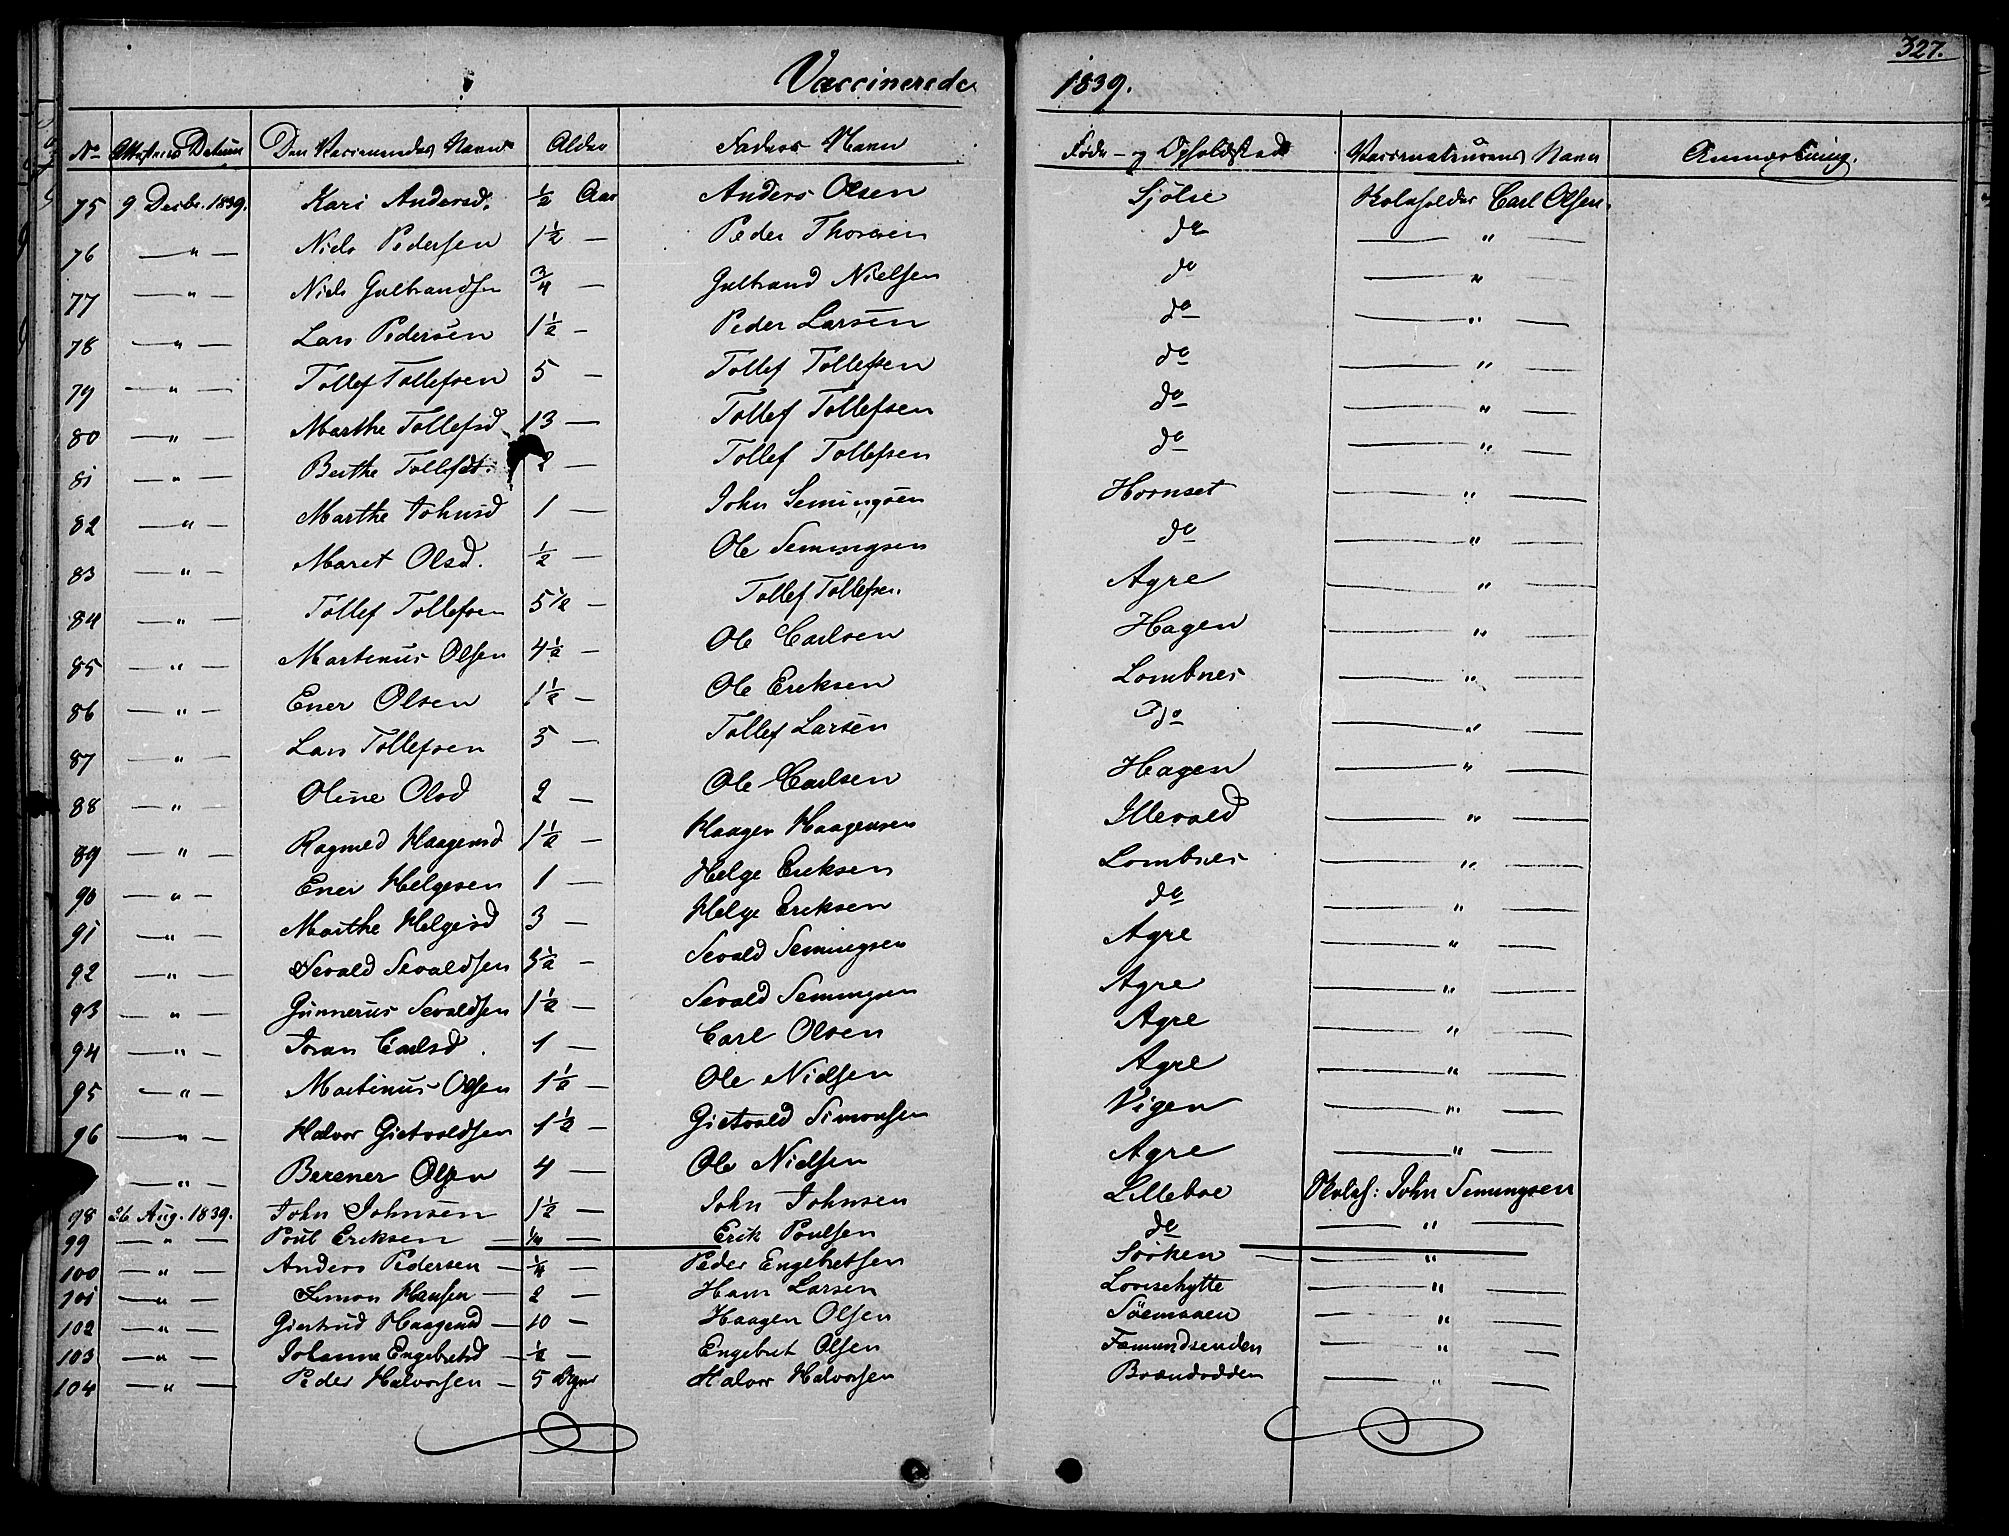 327.
Vaccinerede 1839.
No Attestens Datum Den Vaccineredes Navn Alder Faders Navn Føde- og Opholdsted Vaccinateurens Navn Anmærkning.
75 9 Decbr. 1839. Kari Andersd. ½ Aar Anders Olsen Sjølie Skoleholder Carl Olsen.
76 — " — Niels Pedersen 1½ — Peder Thorsen do — " —
77 — " — Niels Gulbrandsen ¾ — Gulbrand Nielsen do — " —
78 — " — Lars Pedersen 1½ — Peder Larsen do — " —
79 — " — Tollef Tollefsen 5 — Tollef Tollefsen do — " —
80 — " — Marthe Tollefsd 13 — Tollef Tollefsen do — " —
81 — " — Berthe Tollefsd. 2 — Tollef Tollefsen do — " —
82 — " — Marthe Johnsd 1 — John Semingsen Hornset — " —
83 — " — Maret Olsd. ½ — Ole Semingsen do — " —
84 — " — Tollef Tollefsen 5½ — Tollef Tollefsen. Agre — " —
85 — " — Martinus Olsen 4½ — Ole Carlsen Hagen — " —
86 — " — Ener Olsen 1½ — Ole Eriksen Lombnes — " —
87 — " — Lars Tollefsen 5 — Tollef Larsen do — " —
88 — " — Oline Olsd 2 — Ole Carlsen Hagen — " —
89 — " — Ragnild Haagensd 1½ — Haagen Haagensen Illevold — " —
90 — " — Ener Helgesen 1 — Helge Eriksen Lombnes — " —
91 — " — Marthe Helgesd 3 — Helge Eriksen do — " —
92 — " — Sevald Sevaldsen 3½ — Sevald Semingsen Agre — " —
93 — " — Gunnerus Sevaldsen 1½ — Sevald Semingsen Agre — " —
94 — " — Joran Carlsd. 1 — Carl Olsen Agre — " —
95 — " — Martinus Olsen 1½ — Ole Nielsen Agre — " —
96 — " — Halvor Gietvaldsen 1½ — Gietvald Simonsen Vigen — " —
— " — Bersner Olsen 4 — Ole Nielsen Agre — " —
98 26 Aug. 1839. John Johnsen 1½ — John Johnsen Lilleboe Skoleh: John Semingsen
99 — " — Poul Eriksen — ¼ — Erik Poulsen do — " —
100 — " — Anders Pedersen — ¼ — Peder Engebretsen Sörken — " —
101 — " — Simon Hansen — 2 — Hans Larsen Lovisehytte — " —
102 — " — Giertrud Haagensd — 10 — Haagen Olsen Söemoaen — " —
103 — " — Johanne Engebretsd — ½ — Engebret Olsen Fæmundsenden — " —
104 — " — Peder Halvorsen — 5 Dage Halvor Halvorsen Brændodden — " —